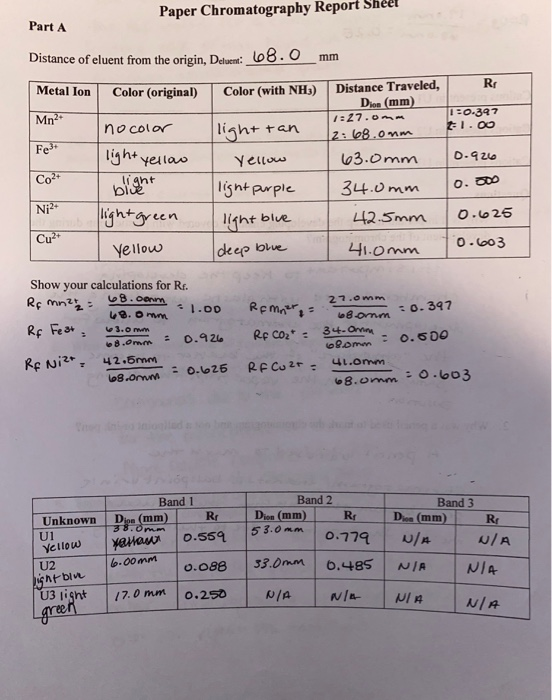 Paper Chromatography Report Sheet
Part A
Distance of eluent from the origin, Deluent: 68.0 mm
Metal Ion Color (original) Color (with NH3) Distance Traveled, Dion (mm) Rf
Mn2+ no color light tan 1=27.0mm 2=68.0mm 1=0.397 2=1.00
Fe3+ light yellow Yellow 63.0mm 0.926
Co2+ light blue light purple 34.0mm 0.500
Ni2+ light green light blue 42.5mm 0.625
Cu2+ Yellow deep blue 41.0mm 0.603
Show your calculations for Rf.
Rf Mn2+2 = 68.00mm / 68.0mm = 1.00 Rf Mn2+1 = 27.0mm / 68.0mm = 0.397
Rf Fe3+ = 63.0mm / 68.0mm = 0.926 Rf CO2+ = 34.0mm / 68.0mm = 0.500
Rf Ni2+ = 42.5mm / 68.0mm = 0.625 Rf Cu2+ = 41.0mm / 68.0mm = 0.603
Band 1 Band 2 Band 3
Unknown Dion (mm) Rf Dion (mm) Rf Dion (mm) Rf
U1 Yellow 38.0mm 0.559 53.0mm 0.779 N/A N/A
U2 light blue 6.00mm 0.088 33.0mm 0.485 N/A N/A
U3 light green 17.0mm 0.250 N/A N/A N/A N/A